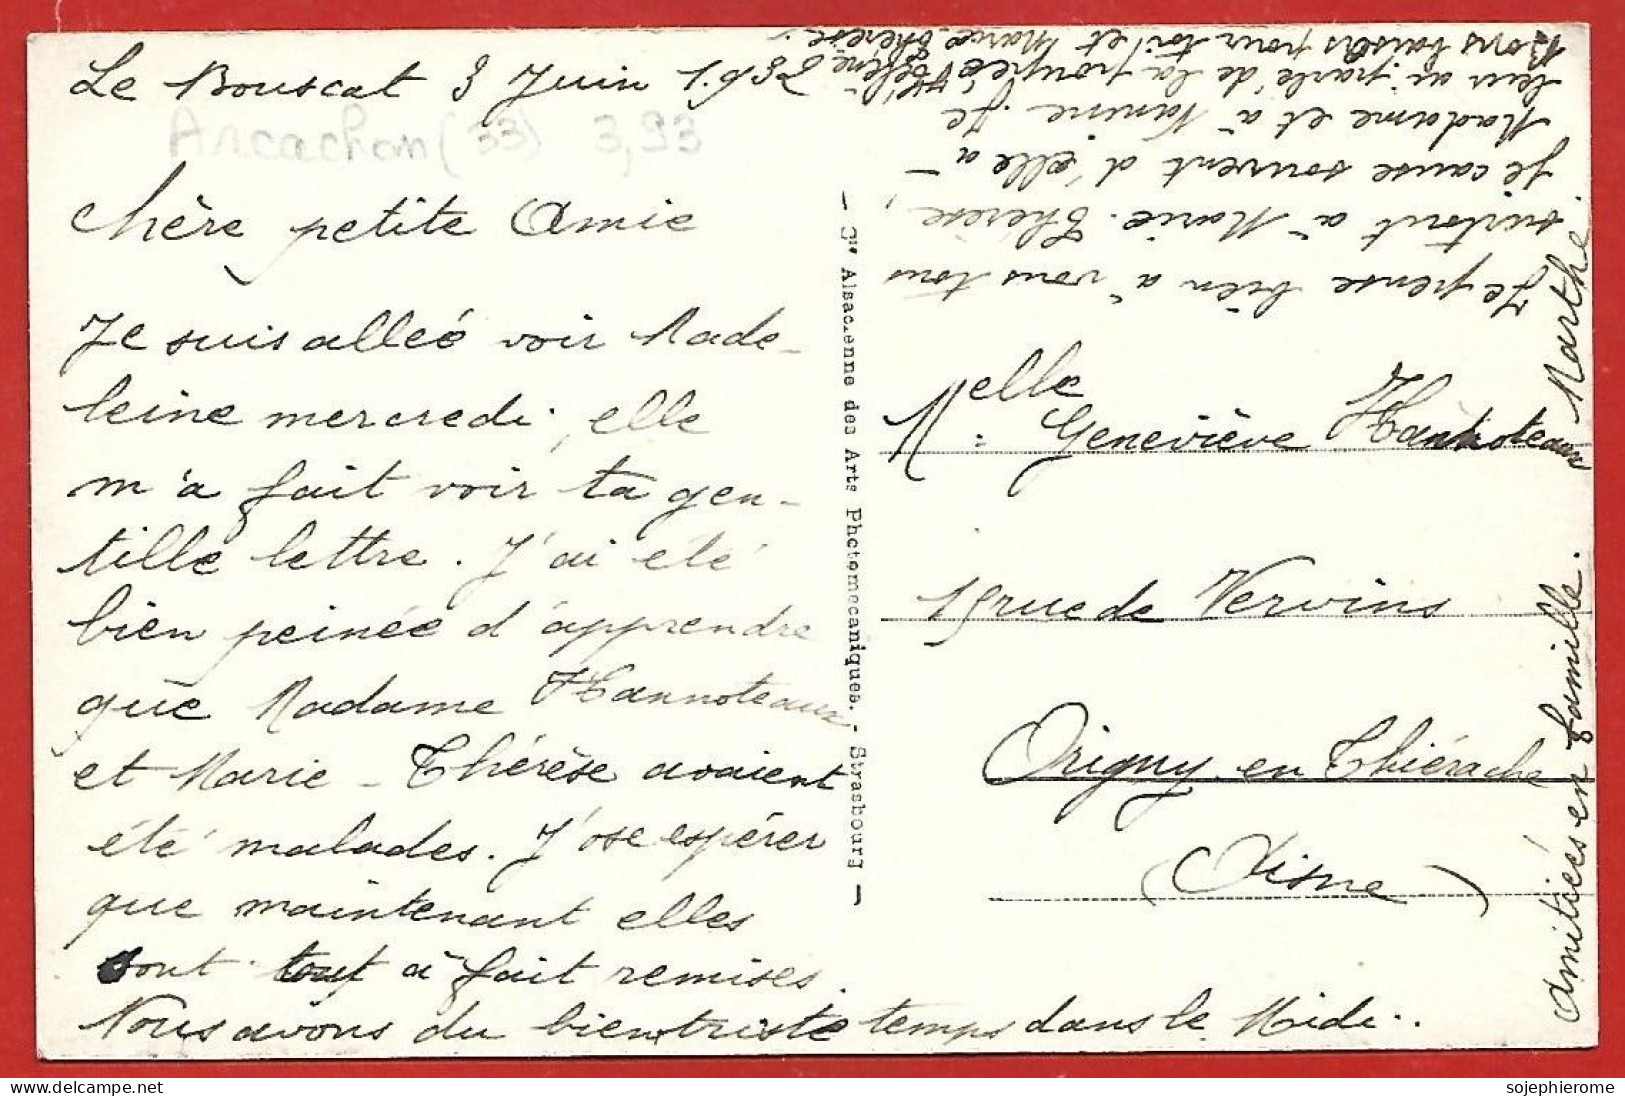 Le Bouscat 3 Juin 1.932
Arcachon (33) 3,93
Chère petite Amie
Je suis alleé voir Made-
leine mercredi, elle
m'a fait voir ta gen-
tille lettre. J'ai été
bien peinée d'apprendre
que Madame Hannoteaux
et Marie-Thérèse avaient
été malades. J'ose espérer
que maintenant elles
sont tout à fait remises.
Nous avons du bien triste temps dans le Midi..
Je pense bien à vous tous
surtout à Marie-Thérèse,
je cause souvent d'elle à
Madame et à Nanine. Je
leur ai parlé de la poupée
Bons baisers pour toi et Marie-Thérèse.
amitiées en famille. Marthe.
- Sté Alsacienne des Arts Photomécaniques. - Strasbourg -
Melle: Geneviève Hannoteaux
19 rue de Vervins
Origny en Thiérache
(Aisne)
sojephierome